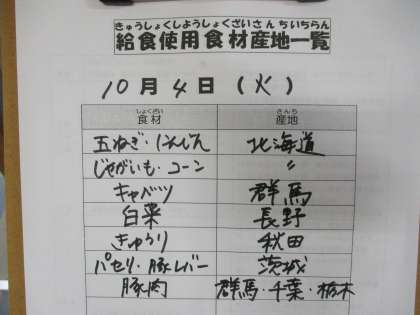 きゅうしょくしようしょくざいさんちいちらん
給食使用食材産地一覧
10月4日(火)
しょくざい さんち
食材 産地
玉ねぎ・にんじん 北海道
じゃがいも・コーン 〃
キャベツ 群馬
白菜 長野
きゅうり 秋田
パセリ・豚レバー 茨城
豚肉 群馬・千葉・栃木